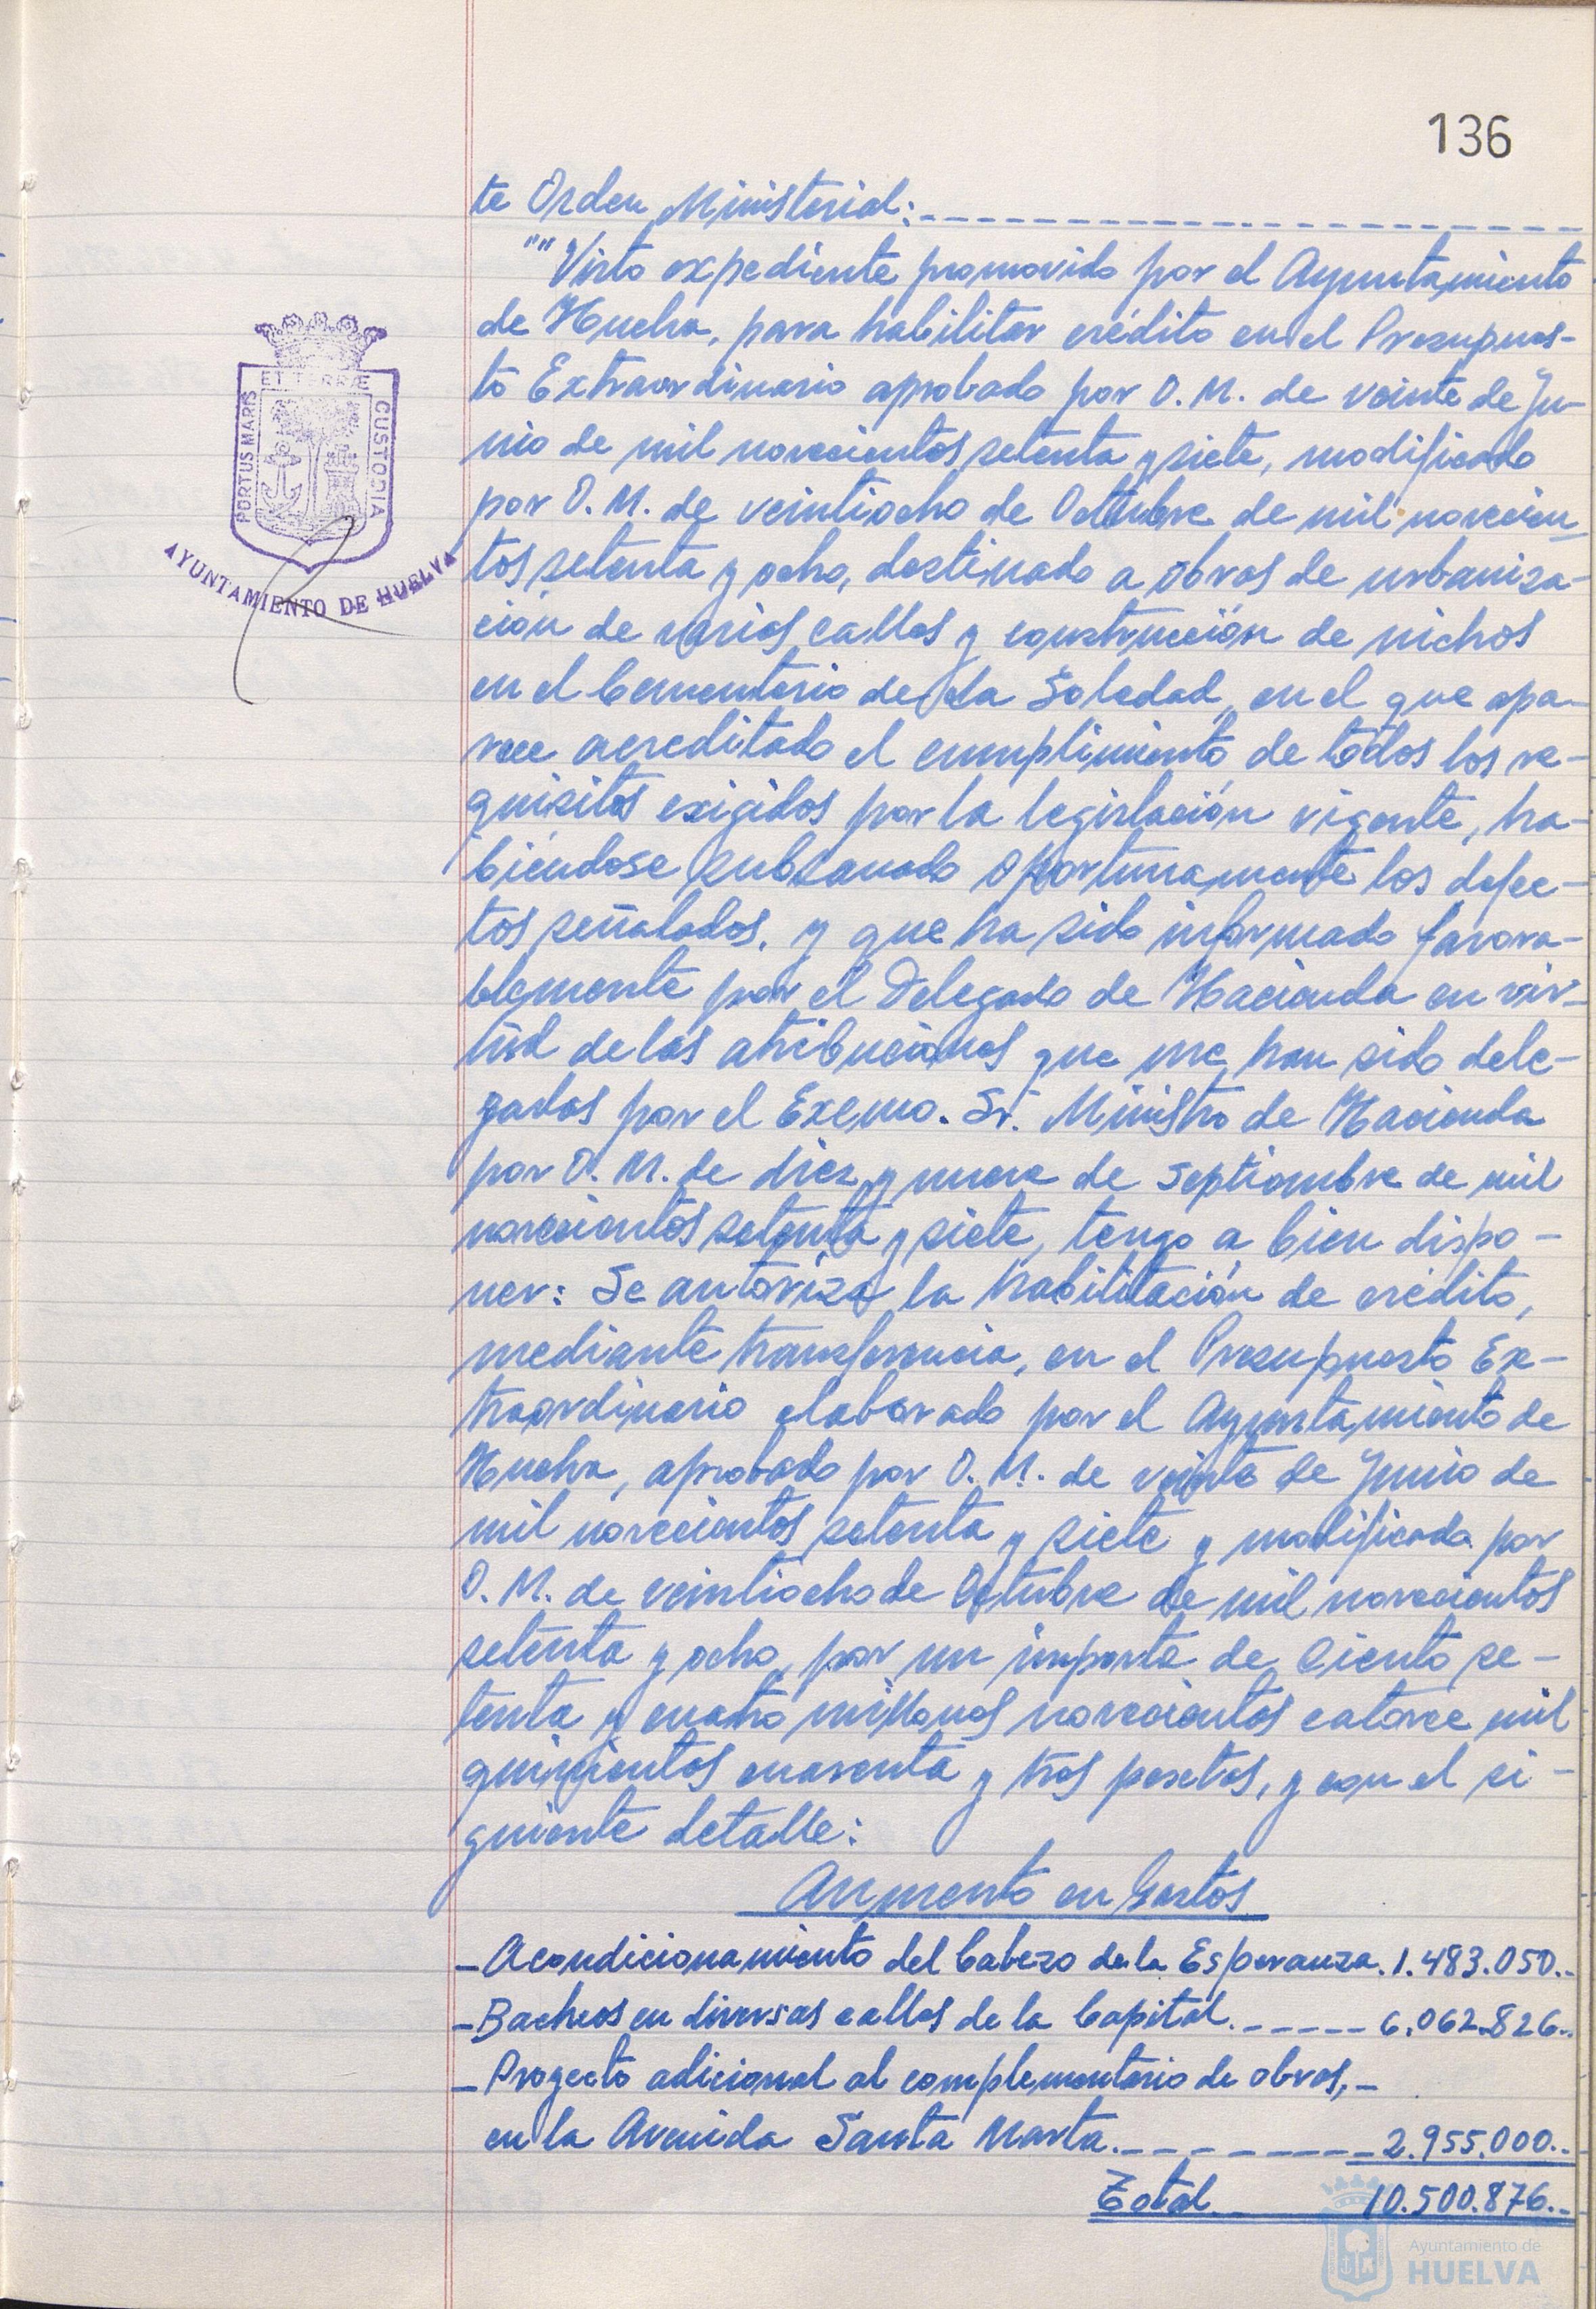 136
te Orden Ministerial:
""Visto expediente promovido por el Ayuntamiento
de Huelva, para habilitar crédito en el Presupues-
to Extraordinario aprobado por O. M. de veinte de Ju-
nio de mil novecientos setenta y siete, modificado
por O. M. de veintiocho de Octubre de mil novecien
tos setenta y ocho, destinado a obras de urbaniza-
ción de varias calles y construcción de nichos
en el Cementerio de la Soledad, en el que apa-
rece acreditado el cumplimiento de todos los re-
quisitos exigidos por la legislación vigente, ha-
biéndose subsanado oportunamente los defec-
tos señalados, y que ha sido informado favora-
blemente por el Delegado de Hacienda en vir-
tud de las atribuciones que me han sido dele-
gadas por el Excmo. Sr. Ministro de Hacienda
por O. M. de diez y nueve de Septiembre de mil
novecientos setenta y siete, tengo a bien dispo-
ner: Se autoriza la habilitación de crédito,
mediante transferencia, en el Presupuesto Ex-
traordinario elaborado por el Ayuntamiento de
Huelva, aprobado por O. M. de veinte de Junio de
mil novecientos setenta y siete y modificada por
O. M. de veintiocho de Octubre de mil novecientos
setenta y ocho, por un importe de ciento se-
tenta y cuatro millones novecientos catorce mil
quinientos cuarenta y tres pesetas, y con el si-
guiente detalle:
Aumento en Gastos
-Acondicionamiento del Cabezo de la Esperanza. 1.483.050.-
-Bacheos en diversas calles de la Capital. 6.062.826.-
-Proyecto adicional al complementario de obras,-
en la Avenida Santa Marta. 2.955.000.-
Total 10.500.876.-
PORTUS MARIS ET TERRÆ CUSTODIA
AYUNTAMIENTO DE HUELVA
Ayuntamiento de
HUELVA